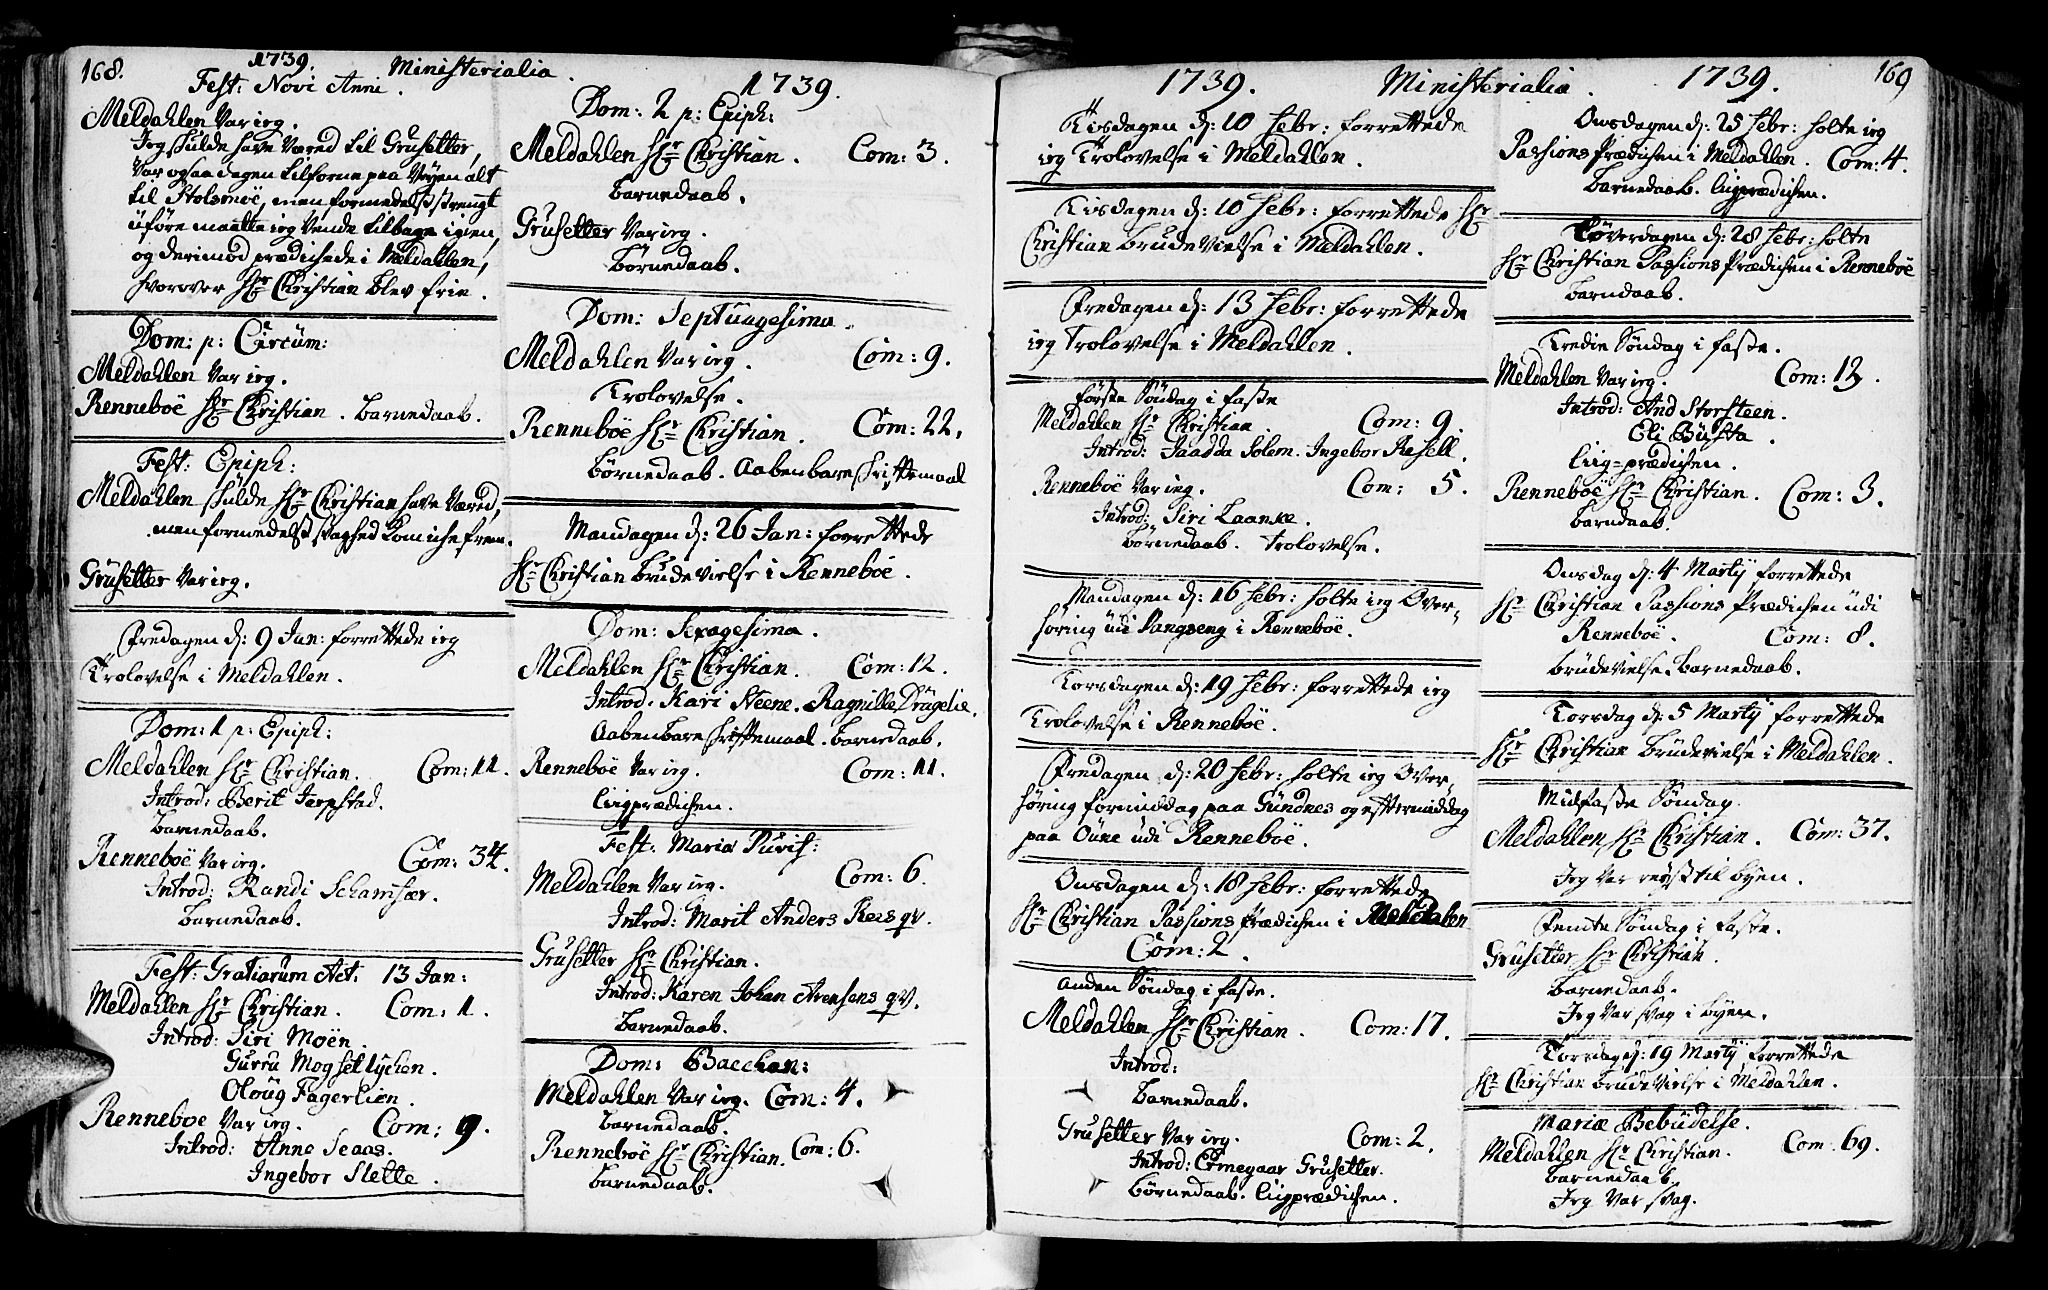 168.
1739. Ministerialia.
Fest: Novi Anni.
Meldahlen Var ieg.
Jeg skulde have Væred til Grusetter,
Var ogsaa dagen tilforne paa Veyen alt
til Stolsmoe, men formedelst strengt
uføre maatte ieg Vende tilbage igien,
og derimod prædichede i Meldahlen,
hvorover Hr Christian blev frie.
Dom: p: Circum:
Meldahlen Var ieg.
Renneboe Hr Christian. Barnedaab.
Fest: Epiph:
Meldahlen skulde Hr Christian have Væred,
men formedelst svaghed kom iche frem.
Grusetter Var ieg.
Fredagen d: 9 Jan: forrettede ieg
Trolovelse i Meldahlen.
Dom: 1 p: Epiph:
Meldahlen Hr Christian. Com: 11.
Introd: Berit Jerpstad.
Barnedaab.
Renneboe Var ieg. Com: 34.
Introd: Randi Schamfær.
Barnedaab.
Fest: Gratiarum Act: 13 Jan:
Meldahlen Hr Christian. Com: 1.
Introd: Siri Moen.
Gurru Mogsetlychen.
Oloug Fagerlien.
Renneboe Var ieg. Com: 9.
Introd: Anne Seaas.
Ingebor Slette.
1739.
Dom: 2 p: Epiph:
Meldahlen Hr Christian. Com: 3.
Barnedaab.
Grusetter Var ieg.
Børnedaab.
Dom: Septuagesima.
Meldahlen Var ieg. Com: 9.
Trolovelse.
Renneboe Hr Christian. Com: 22.
Børnedaab. Aabenbare skriftemaal
Mandagen d: 26 Jan: forrettede
Hr Christian Brudevielse i Renneboe.
Dom: Sexagesima.
Meldahlen Hr Christian. Com: 12.
Introd: Kari Steene. Ragnille Drugelie.
Aabenbare skriftemaal. Barnedaab.
Renneboe Var ieg. Com: 11.
Liigprædichen.
Fest: Mariæ Purif:
Meldahlen Var ieg. Com: 6.
Introd: Marit Anders Rees qv.
Grusetter Hr Christian.
Introd: Karen Johan Arensens qv.
Barnedaab.
Dom: Bacchan:
Meldahlen Var ieg. Com: 4.
Barnedaab.
Renneboe Hr Christian. Com: 6.
Barnedaab.
1739. Ministerialia. 1739. 169
Tisdagen d: 10 Febr: forrettede
ieg Trolovelse i Meldahlen.
Tisdagen d: 10 Febr: forrettede Hr
Christian Brudevielse i Meldahlen.
Fredagen d: 13 Febr: forrettede
ieg Trolovelse i Meldahlen.
Første Søndag i faste
Meldahlen Hr Christian. Com: 9.
Introd: Jaadda Solem. Ingebor Resell.
Renneboe Var ieg. Com: 5.
Introd: Siri Laanke.
Børnedaab. Trolovelse.
Mandagen d: 16 Febr: holte ieg Over-
høring udi Vangseng i Renneboe.
Torsdagen d: 19 Febr: forrettede ieg
Trolovelse i Renneboe.
Fredagen d: 20 Febr: holte ieg Over-
høring formiddag paa Gundnes og eftermiddag
paa Oune udi Renneboe.
Onsdagen d: 18 Febr: forrettede
Hr Christian Passions Prædichen i Meldahlen
Com: 2.
Anden Søndag i faste.
Meldahlen Hr Christian. Com: 17.
Introd:
Barnedaab.
Grusetter Var ieg. Com: 2.
Introd: Ermegaar Grusetter.
Børnedaab. Liigprædichen.
Onsdagen d: 25 Febr: holte ieg
Passions Prædichen i Meldahlen. Com: 4.
Barnedaab. Liigprædichen.
Løverdagen d: 28 Febr: holte
Hr Christian Passions Prædichen i Renneboe
Barndaab.
Tredie Søndag i faste.
Meldahlen Var ieg. Com: 12.
Introd: And Storsteen.
Eli Busta.
Liig-prædichen.
Renneboe Hr Christian. Com: 3.
Barndaab.
Onsdag d: 4 Martij forrettede
Hr Christian Passions Prædichen udi
Renneboe. Com: 8.
Brudevielse. Barnedaab.
Torsdag d: 5 Martij forrettede
Hr Christian Brudevielse i Meldahlen.
Midfaste Søndag.
Meldahlen Hr Christian. Com: 37.
Jeg Var reyst til Byen.
Femte Søndag i faste.
Grusetter Hr Christian.
Barnedaab.
Jeg Var svag i Byen.
Torsdag d: 19 Martij forrettede
Hr Christian Brudevielse i Meldahlen.
Mariæ Bebudelse.
Meldahlen Hr Christian. Com: 69.
Barnedaab.
Jeg Var svag.